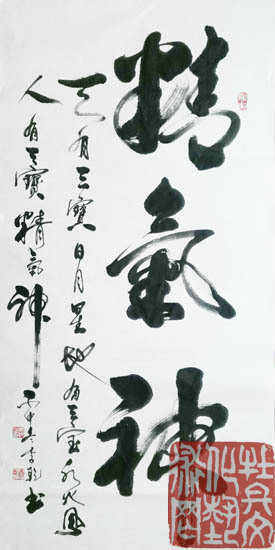 精氣神
天有三寶日月星地有三宝水火風
人有三寶精氣神
丙申冬李乾书